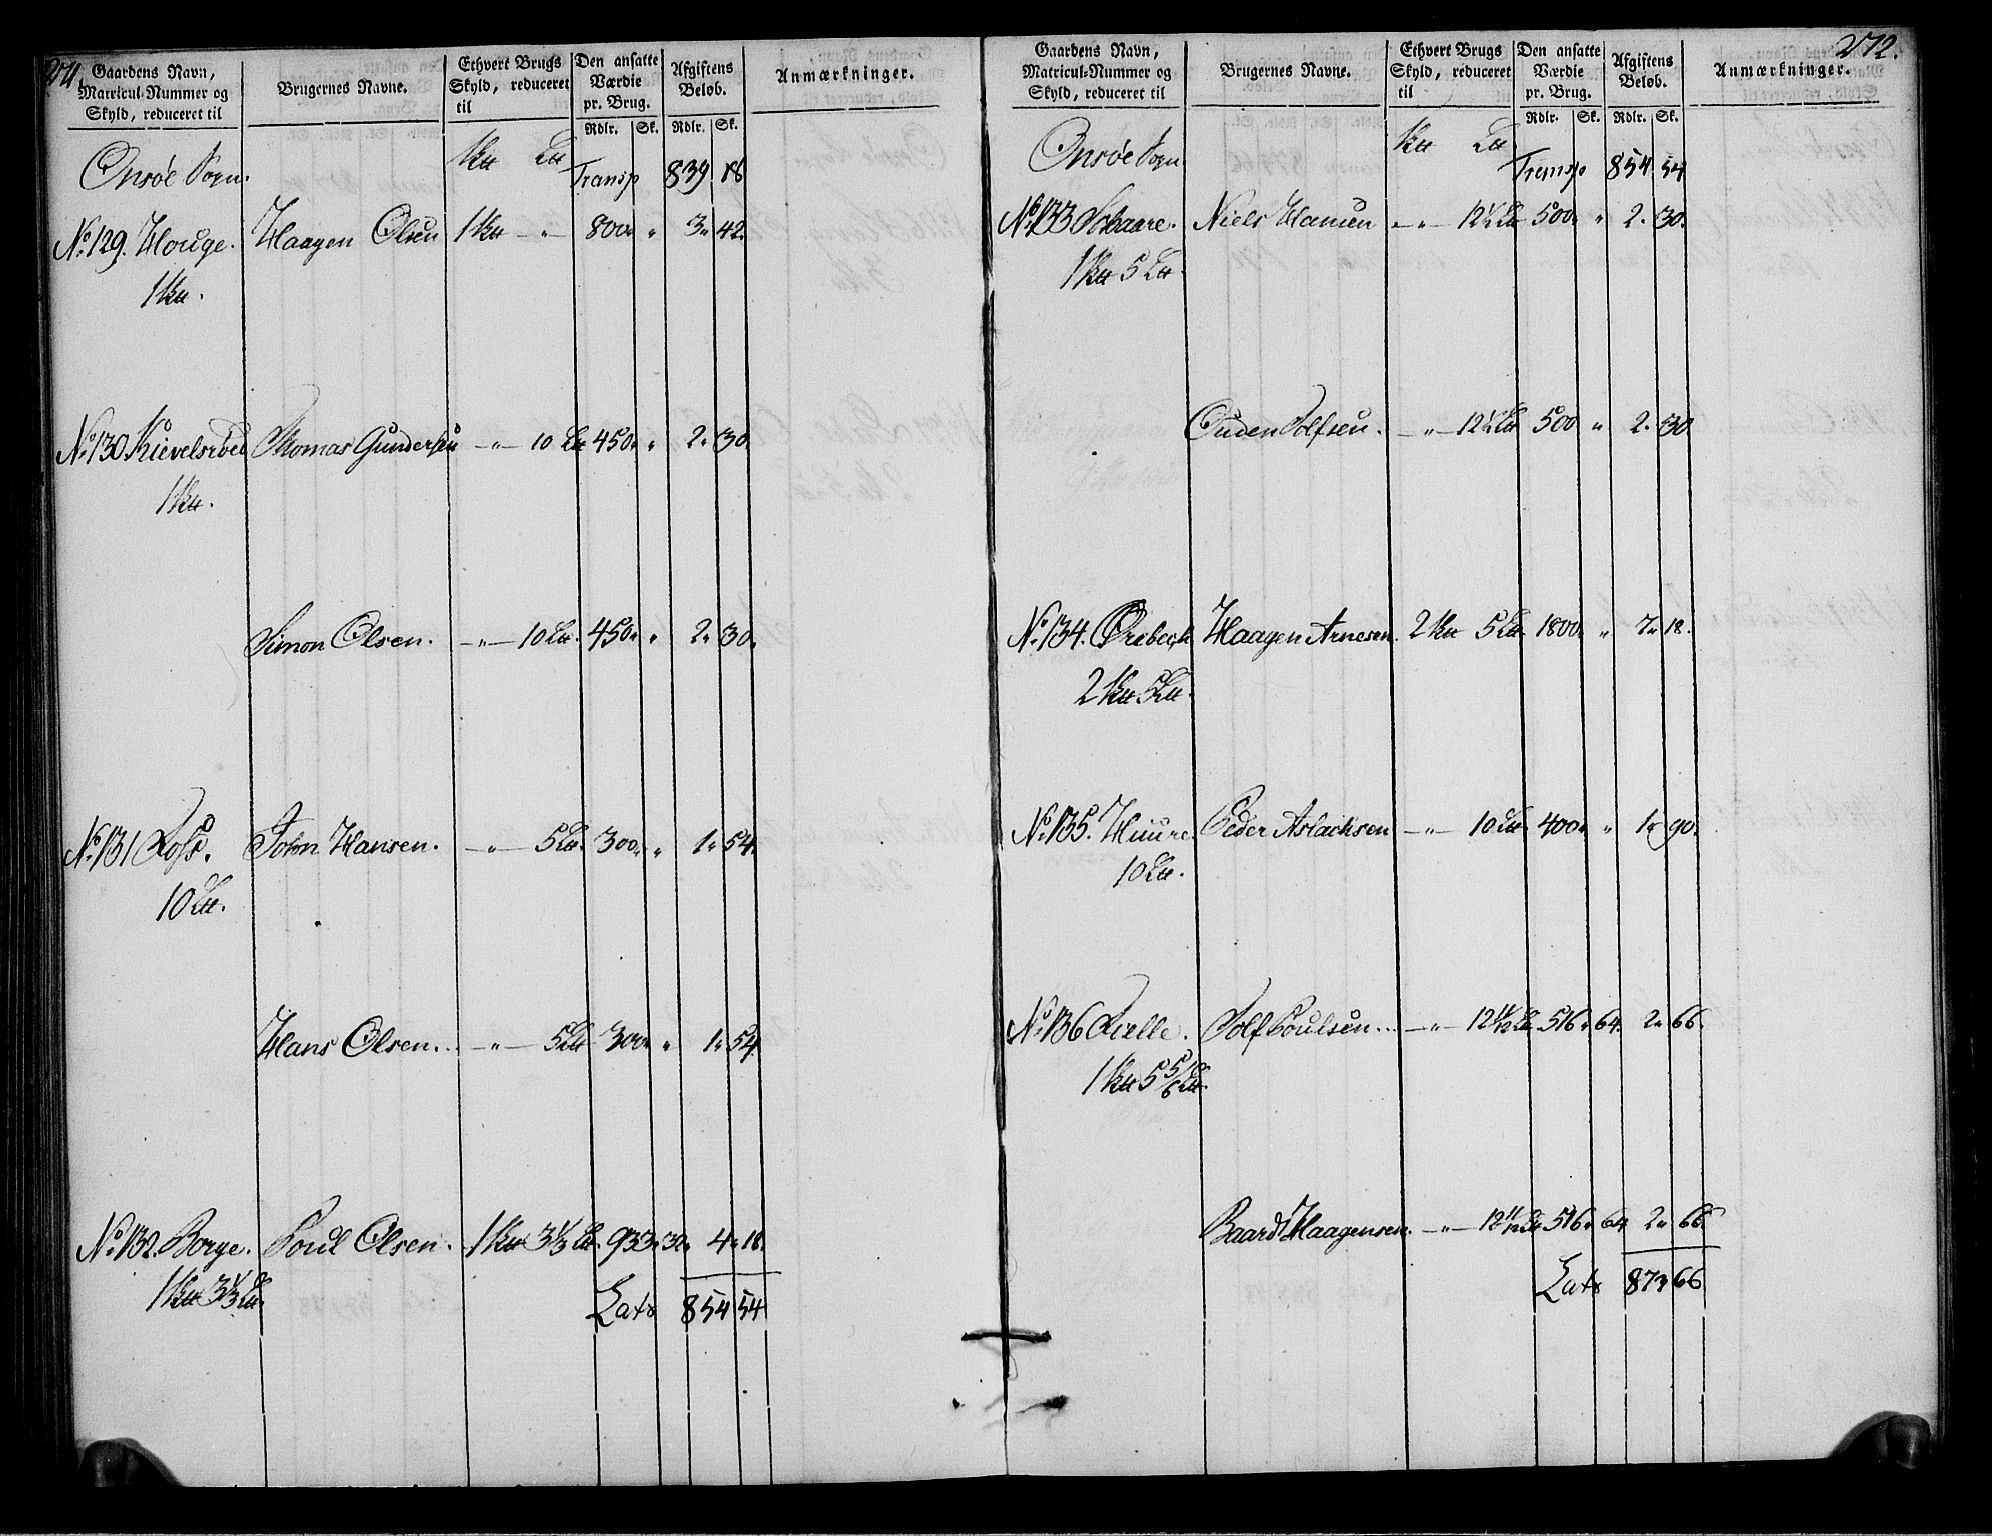 271.
Gaardens Navn, Matricul-Nummer og Skyld, reduceret til | Brugernes Navne. | Ethvert Brugs Skyld, reduceret til | Den ansatte Værdie pr. Brug. Rdlr. Sk. | Afgiftens Beløb. Rdlr. Sk. | Anmærkninger.
Onsøe Sogn. Transp 839 18
No. 129. Houge. Haagen Olsen 800 " 3 " 42.
No. 130. Thomas Gundersen — " — 10 450 " 2 " 30.
Simon Olsen. — " — 10 450 " 2 " 30.
No. 131 John Hansen. — " — 5 300 " 1 " 54.
10
Hans Olsen. — " — 5 300 " 1 " 54.
No. 132. Borge. Poul Olsen. 1 3⅓ 933 " 32 " 4 " 18.
1 3⅓
Lats 854 54
272.
Gaardens Navn, Matricul-Nummer og Skyld, reduceret til | Brugernes Navne. | Ethvert Brugs Skyld, reduceret til | Den ansatte Værdie pr. Brug. Rdlr. Sk. | Afgiftens Beløb. Rdlr. Sk. | Anmærkninger.
Onsøe Sogn Transp 854 54
No. 133 Schaare. Niels Hansen " — " — 12½ 500 " 2 " 30.
1 5
Ouden Tolfsen. — " — 12½ 500 " 2 " 30.
No. 134. Ørebech Haagen Arnesen 2 5 1800 " 7 " 18.
2 5
No. 135. Huure. Peder Aslachsen — " — 10 400 " 1 " 90.
10
No. 136 Tolf Poulsen — " — 12 11/12 516 " 64. 2 " 66.
1 5 5/6
Baard Haagensen. — " — 12 11/12 516 " 64 2 " 66
Lats 873 66